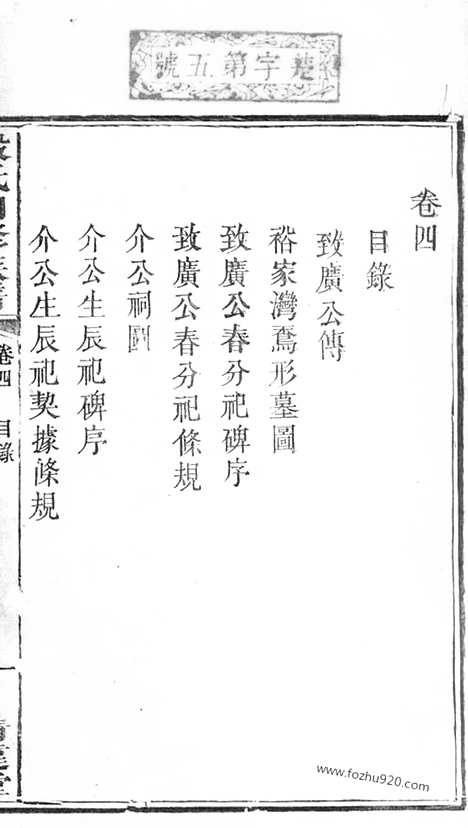 楚字第五號
卷四
目錄
致廣公傳
裕家灣鴦形墓圖
致廣公春分祀碑序
致廣公春分祀條規
介公祠圖
介公生辰祀碑序
介公生辰祀契據條規
卷四 目錄
www.fozhu920.com